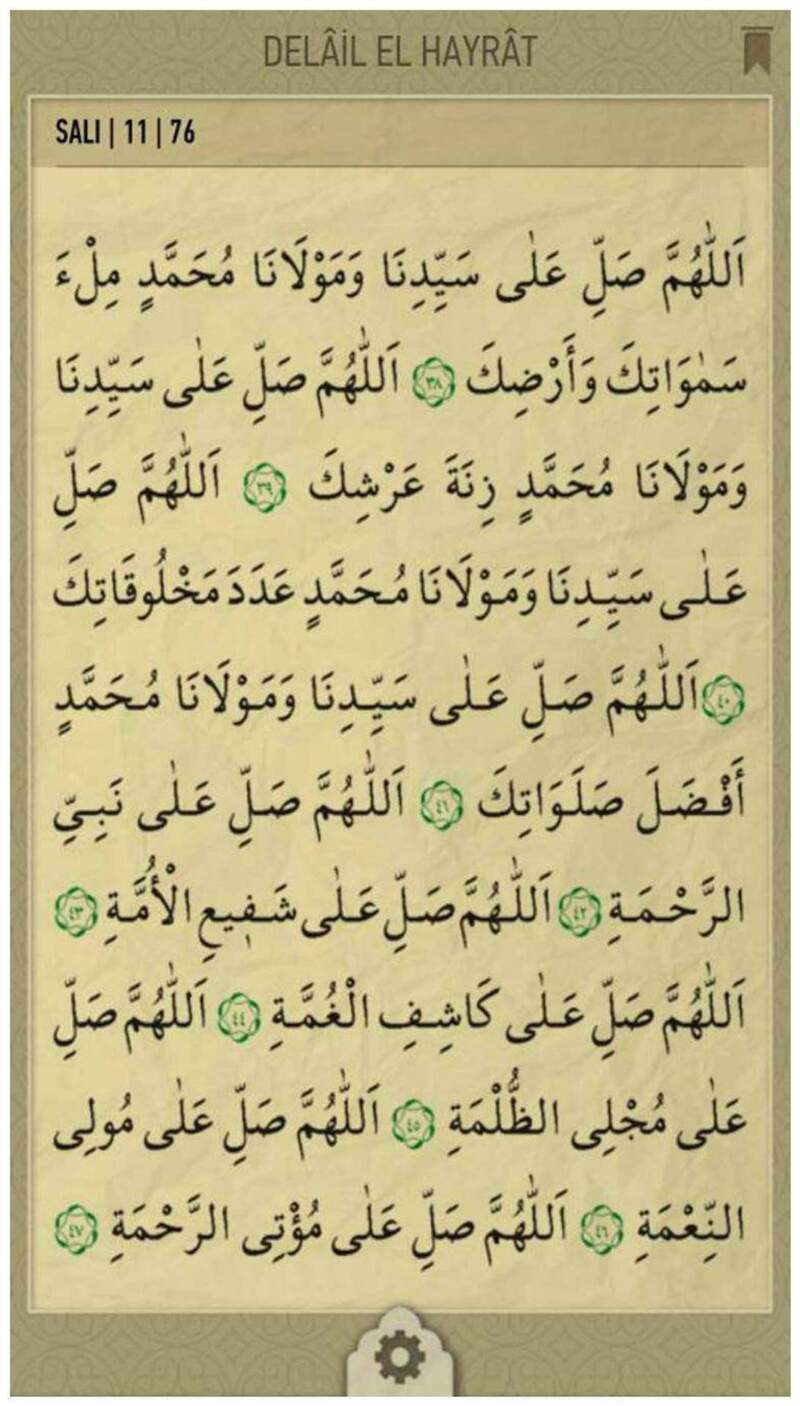 DELÂİL EL HAYRÂT
SALI | 11 | 76
اَللّٰهُمَّ صَلِّ عَلٰى سَيِّدِنَا وَمَوْلَانَا مُحَمَّدٍ مِلْءَ
سَمٰوَاتِكَ وَأَرْضِكَ ٣٨ اَللّٰهُمَّ صَلِّ عَلٰى سَيِّدِنَا
وَمَوْلَانَا مُحَمَّدٍ زِنَةَ عَرْشِكَ ٣٩ اَللّٰهُمَّ صَلِّ
عَلٰى سَيِّدِنَا وَمَوْلَانَا مُحَمَّدٍ عَدَدَ مَخْلُوقَاتِكَ
٤٠ اَللّٰهُمَّ صَلِّ عَلٰى سَيِّدِنَا وَمَوْلَانَا مُحَمَّدٍ
أَفْضَلَ صَلَوَاتِكَ ٤١ اَللّٰهُمَّ صَلِّ عَلٰى نَبِيِّ
الرَّحْمَةِ ٤٢ اَللّٰهُمَّ صَلِّ عَلٰى شَفِيعِ الْأُمَّةِ ٤٣
اَللّٰهُمَّ صَلِّ عَلٰى كَاشِفِ الْغُمَّةِ ٤٤ اَللّٰهُمَّ صَلِّ
عَلٰى مُجْلِى الظُّلْمَةِ ٤٥ اَللّٰهُمَّ صَلِّ عَلٰى مُولِى
النِّعْمَةِ ٤٦ اَللّٰهُمَّ صَلِّ عَلٰى مُؤْتِى الرَّحْمَةِ ٤٧